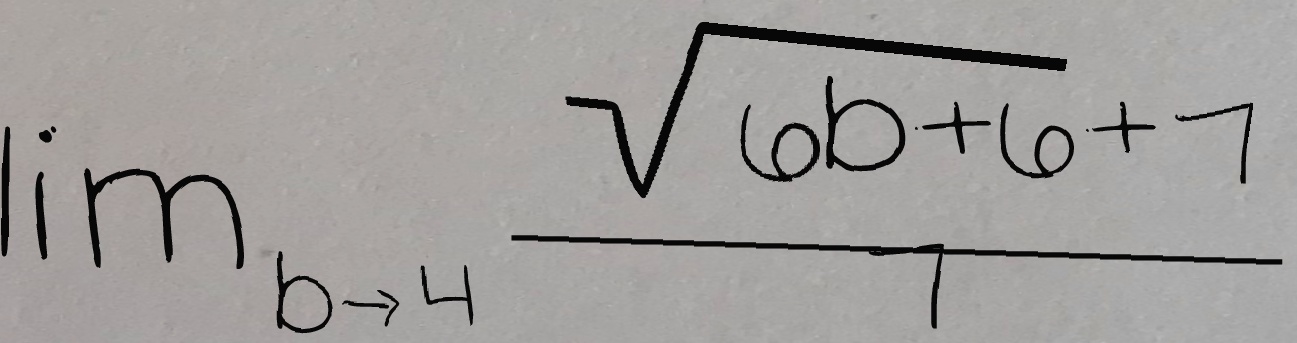 \lim_{b \to 4} \frac{\sqrt{6b+6}+7}{7}